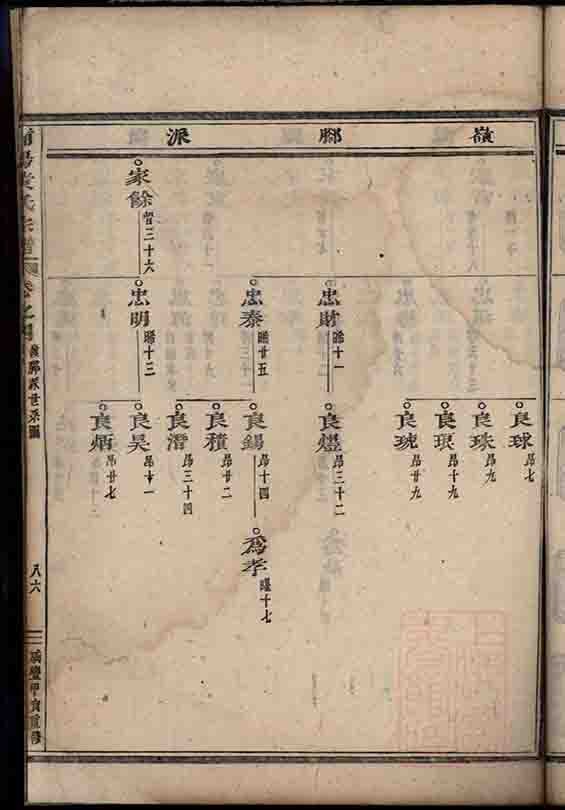 嶺腳派
良球 昂七
良珠 昂九
良琅 昂十九
良琥 昂廿九
忠財 暘十一
良燈 昂三十二
忠泰 暘廿五
良錫 昂十四
為孝 曜十七
良積 昂二二
良潛 昂三十四
家餘 曾三十六
忠明 暘十三
良昊 昂十一
良炳 昂廿七
氏宗譜
卷之
嶺腳派世系圖
八六
咸豐甲寅重修